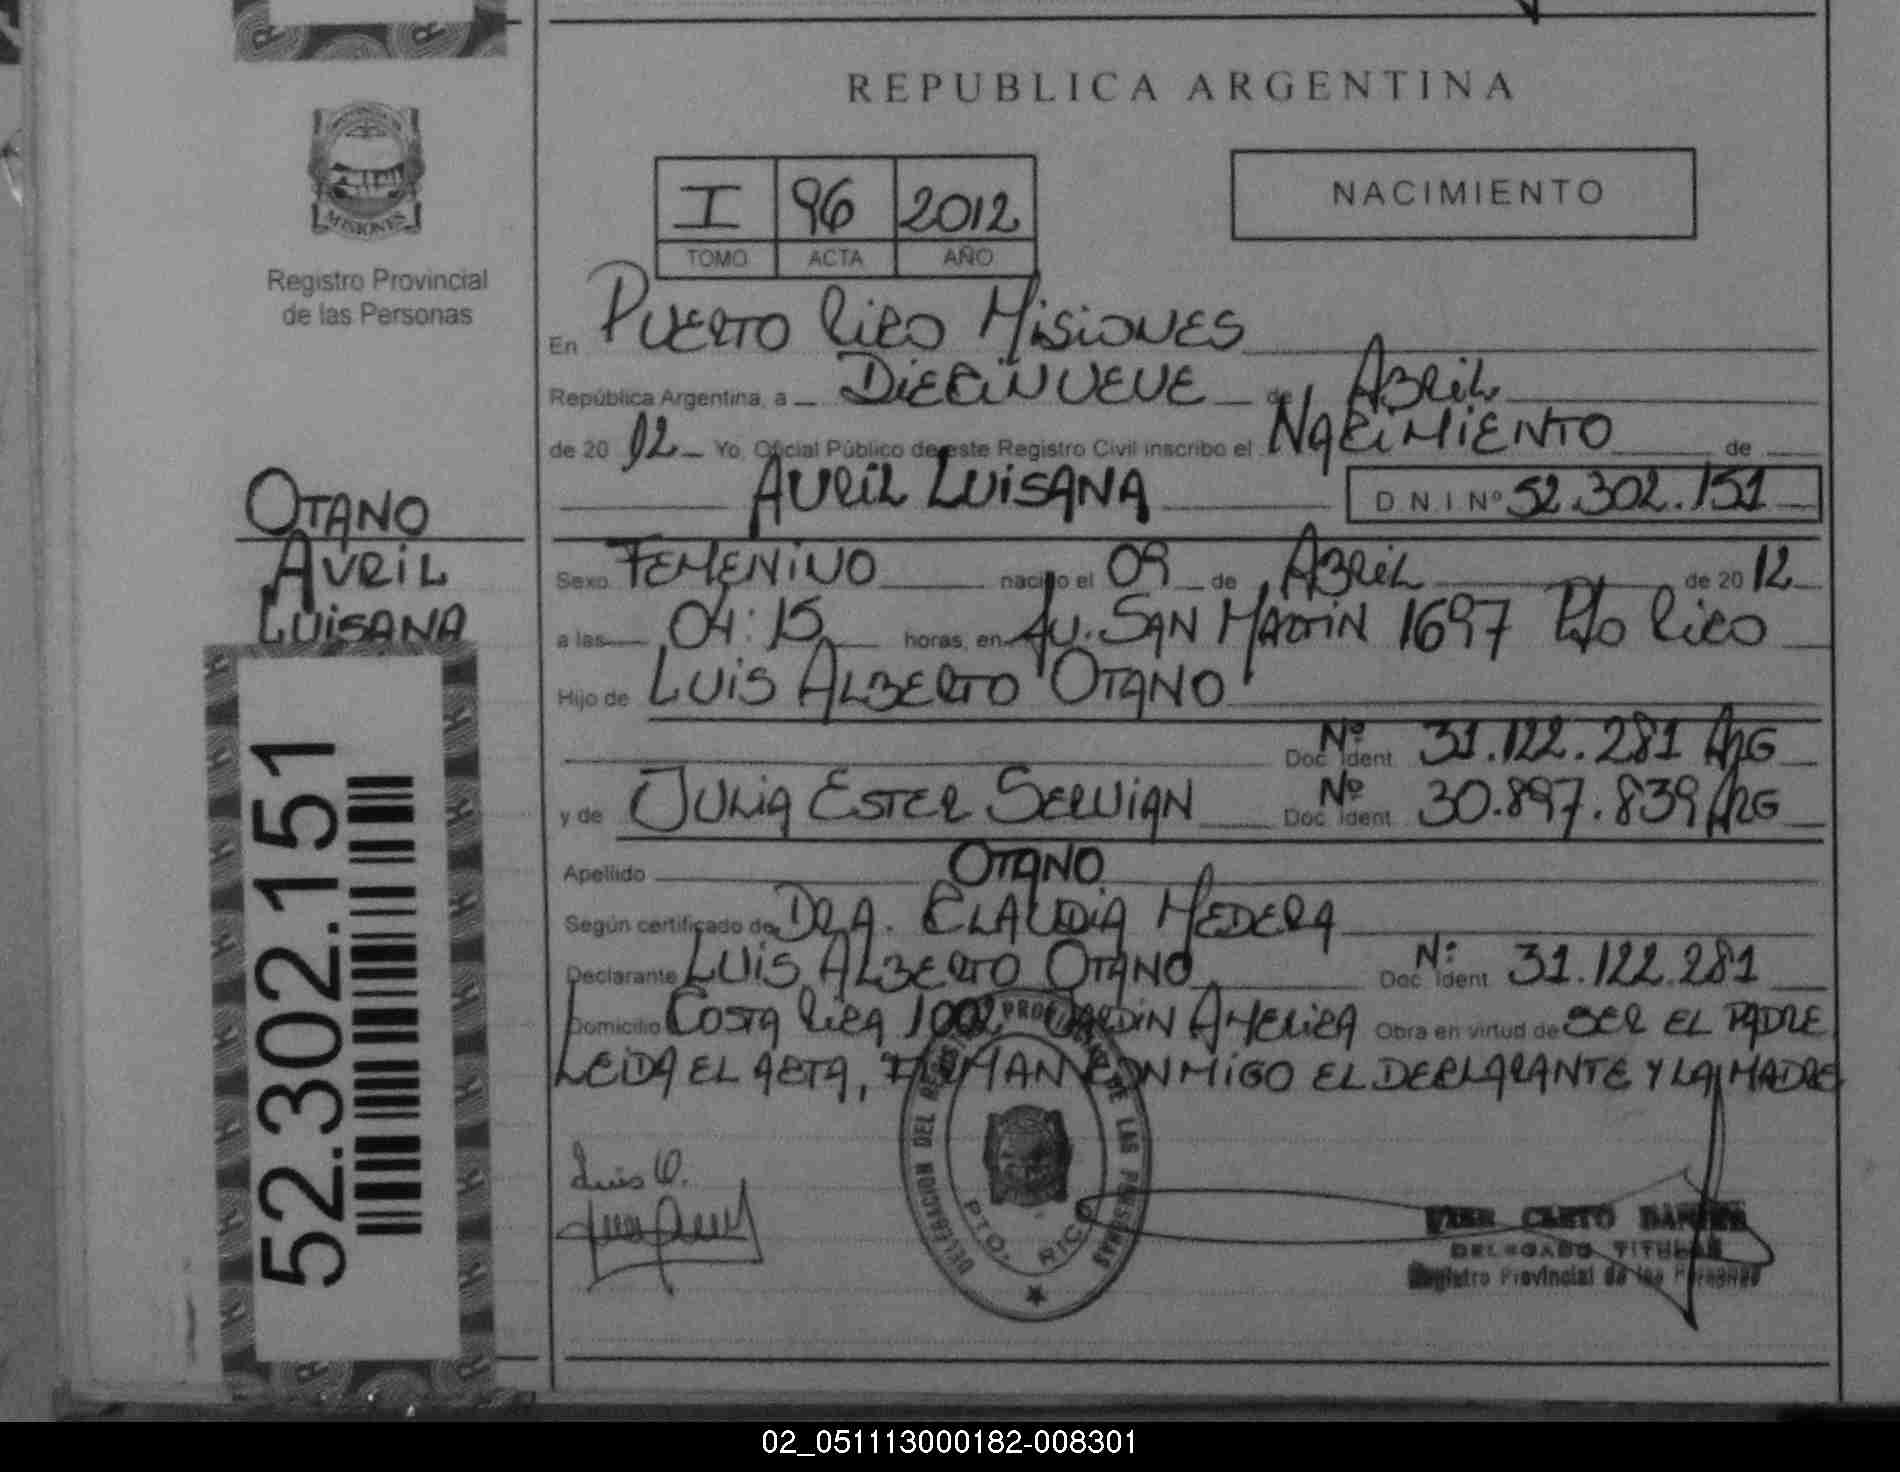 REPUBLICA ARGENTINA
MISIONES
Registro Provincial
de las Personas
I 96 2012
TOMO ACTA AÑO
NACIMIENTO
En PUERTO RICO MISIONES
República Argentina, a DIECINUEVE de ABRIL
de 20 12 Yo, Oficial Público de este Registro Civil inscribo el NACIMIENTO de
AVRIL LUISANA D N I Nº 52.302.151
OTANO
AVRIL
LUISANA
Sexo FEMENINO nacido el 09 de ABRIL de 20 12
a las 04:15 horas, en AV. SAN MARTIN 1697 Pto RICO
Hijo de LUIS ALBERTO OTANO
Nº Doc Ident 31.122.281 ARG
y de JULIA ESTER SERVIAN Nº Doc Ident 30.897.839 ARG
Apellido OTANO
Según certificado de DRA. CLAUDIA MEDERA
Declarante LUIS ALBERTO OTANO Nº Doc Ident 31.122.281
Domicilio COSTA RICA 1002 JARDIN AMERICA Obra en virtud de SER EL PADRE
LEIDA EL ACTA, FIRMAN CONMIGO EL DECLARANTE Y LA MADRE
52.302.151
Luis O.
DELEGACION DEL REGISTRO PROVINCIAL DE LAS PERSONAS
PTO. RICO
DELEGADO TITULAR
Registro Provincial de las Personas
02_051113000182-008301